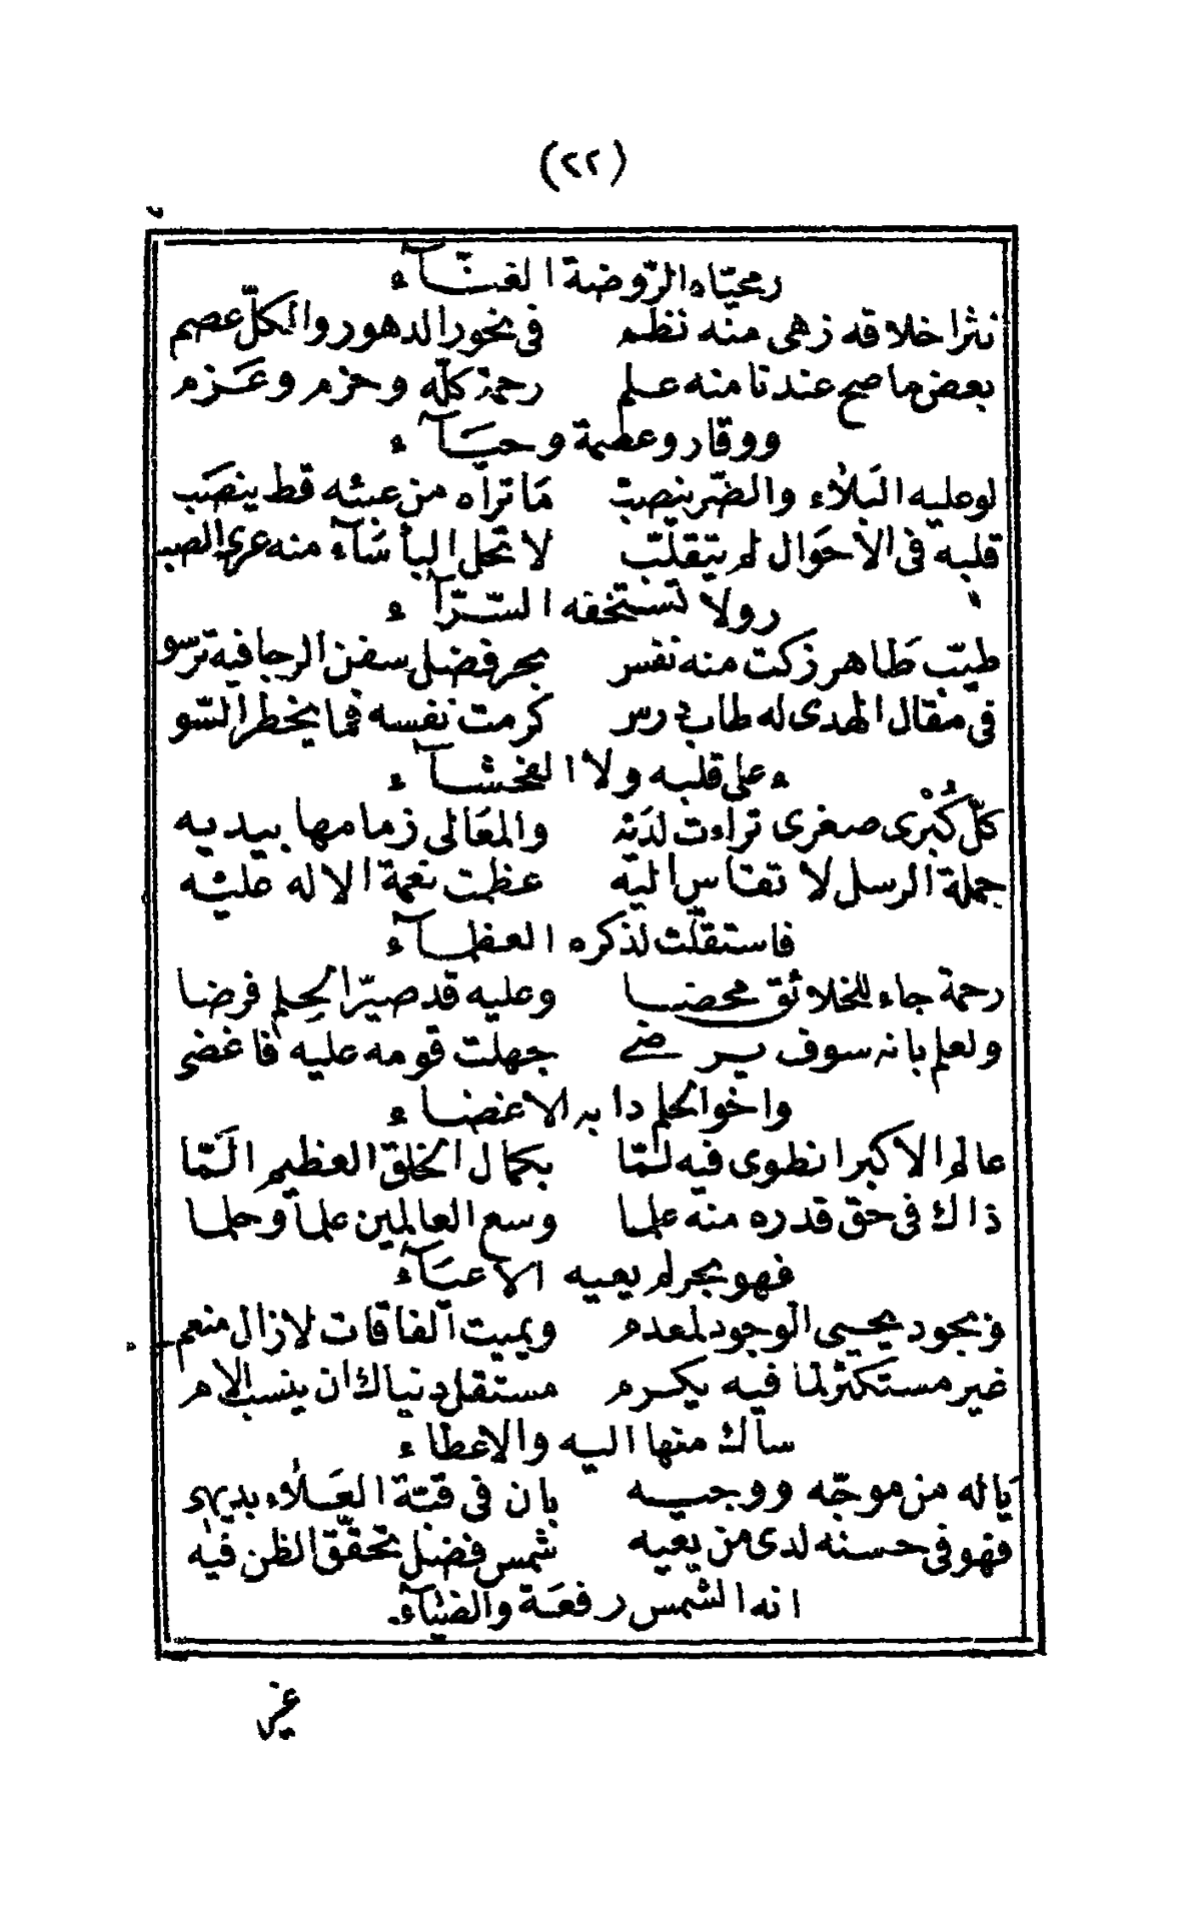 (٢٢)
ر محيّاه الرّوضة الغنّآء
نثر اخلاقه زهى منه نظم في نحور الدهور والكلّ عصم
بعض ما صح عندنا منه علم رحمة كلّه وحزم وعَزم
ووقار وعصمة وحيَآء
لو عليه البَلاء والضّر ينصبّ مَا تراه من عبئه قط ينصَب
قلبه في الاحوال لم يتقلّب لا تحل البأسَآء منه عرى الصبـ
ر ولا تستخفه السّرّآء
طيّب طَاهر زكت منه نفس بحر فضل سفن الرجا فيه ترسو
في مقال الهدى له طاب درس كرمت نفسه فما يخطر السّو
ء على قلبه ولا الفحشآء
كلّ كُبْرى صغرى تراءت لدَيه والمعَالى زمامها بيديه
جملة الرسل لا تقاس اليّه عظمت نعمة الاله عليه
فاستقلّت لذكره العظمآء
رحمة جاء للخلائق محضا وعليه قد صيّر الحِلم فرضا
ولعلم بانه سوف يرضى جهلت قومه عليه فاغضى
واخو الحلم دابه الاغضاء
عالم الاكبر انطوى فيه لمّا بكمال الخلق العظيم المّا
ذاك في حق قدره منه علما وسع العالمين علما وحلما
فهو بحر لم يعيه الاعبَآء
ذو بجود يحيى الوجود لمعدم ويميت الفاقات لازال منعم
غير مستكثر لما فيه يكرم مستقل دنياك ان ينسب الام
ساك منها اليه والاعطاء
يَاله من موجّه ووجيه بان في قبّة العَلاء بديهى
فهو في حسنه لدى من يعيه شمس فضل تحقّق الظن فيه
انه الشّمس رفعَة والضيآء